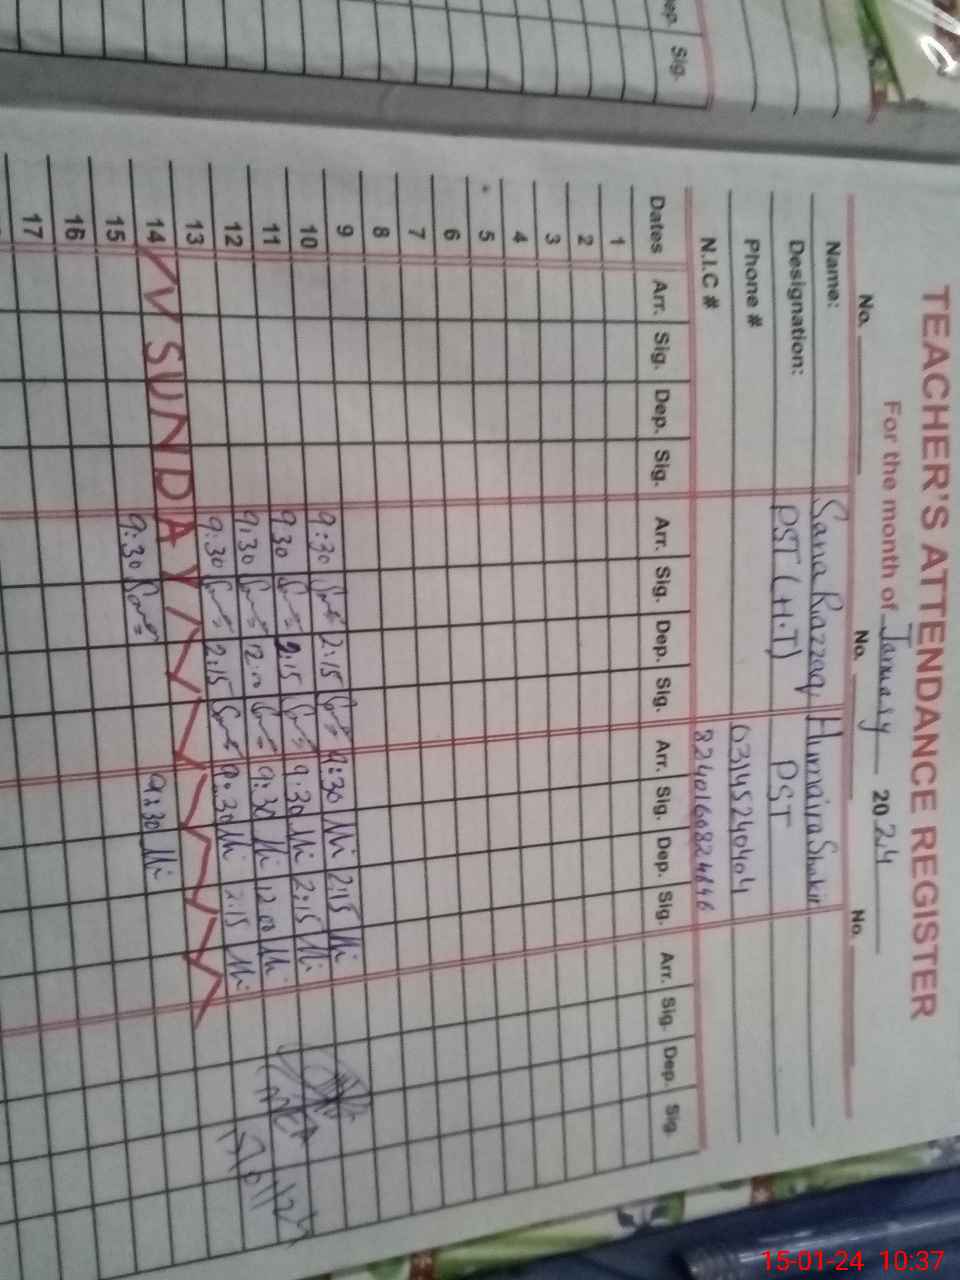 ep. Sig.
TEACHER'S ATTENDANCE REGISTER
For the month of January 2024
No. No. No.
Name: Sana Razzaq Humaira Shakir
Designation: PST (H.T) PST
Phone # 03145240404
N.I.C # 8240160824846
Dates Arr. Sig. Dep. Sig. Arr. Sig. Dep. Sig. Arr. Sig. Dep. Sig. Arr. Sig. Dep. Sig.
1
2
3
4
5
6
7
8
9
10 9:30 2:15 9:30 2:15
11 9:30 2:15 9:30 2:15
12 9:30 12:00 9:30 12:00
13 9:30 2:15 9:30 2:15
14 SUNDAY
15 9:30 9:30
16
17
15-01-24 10:37